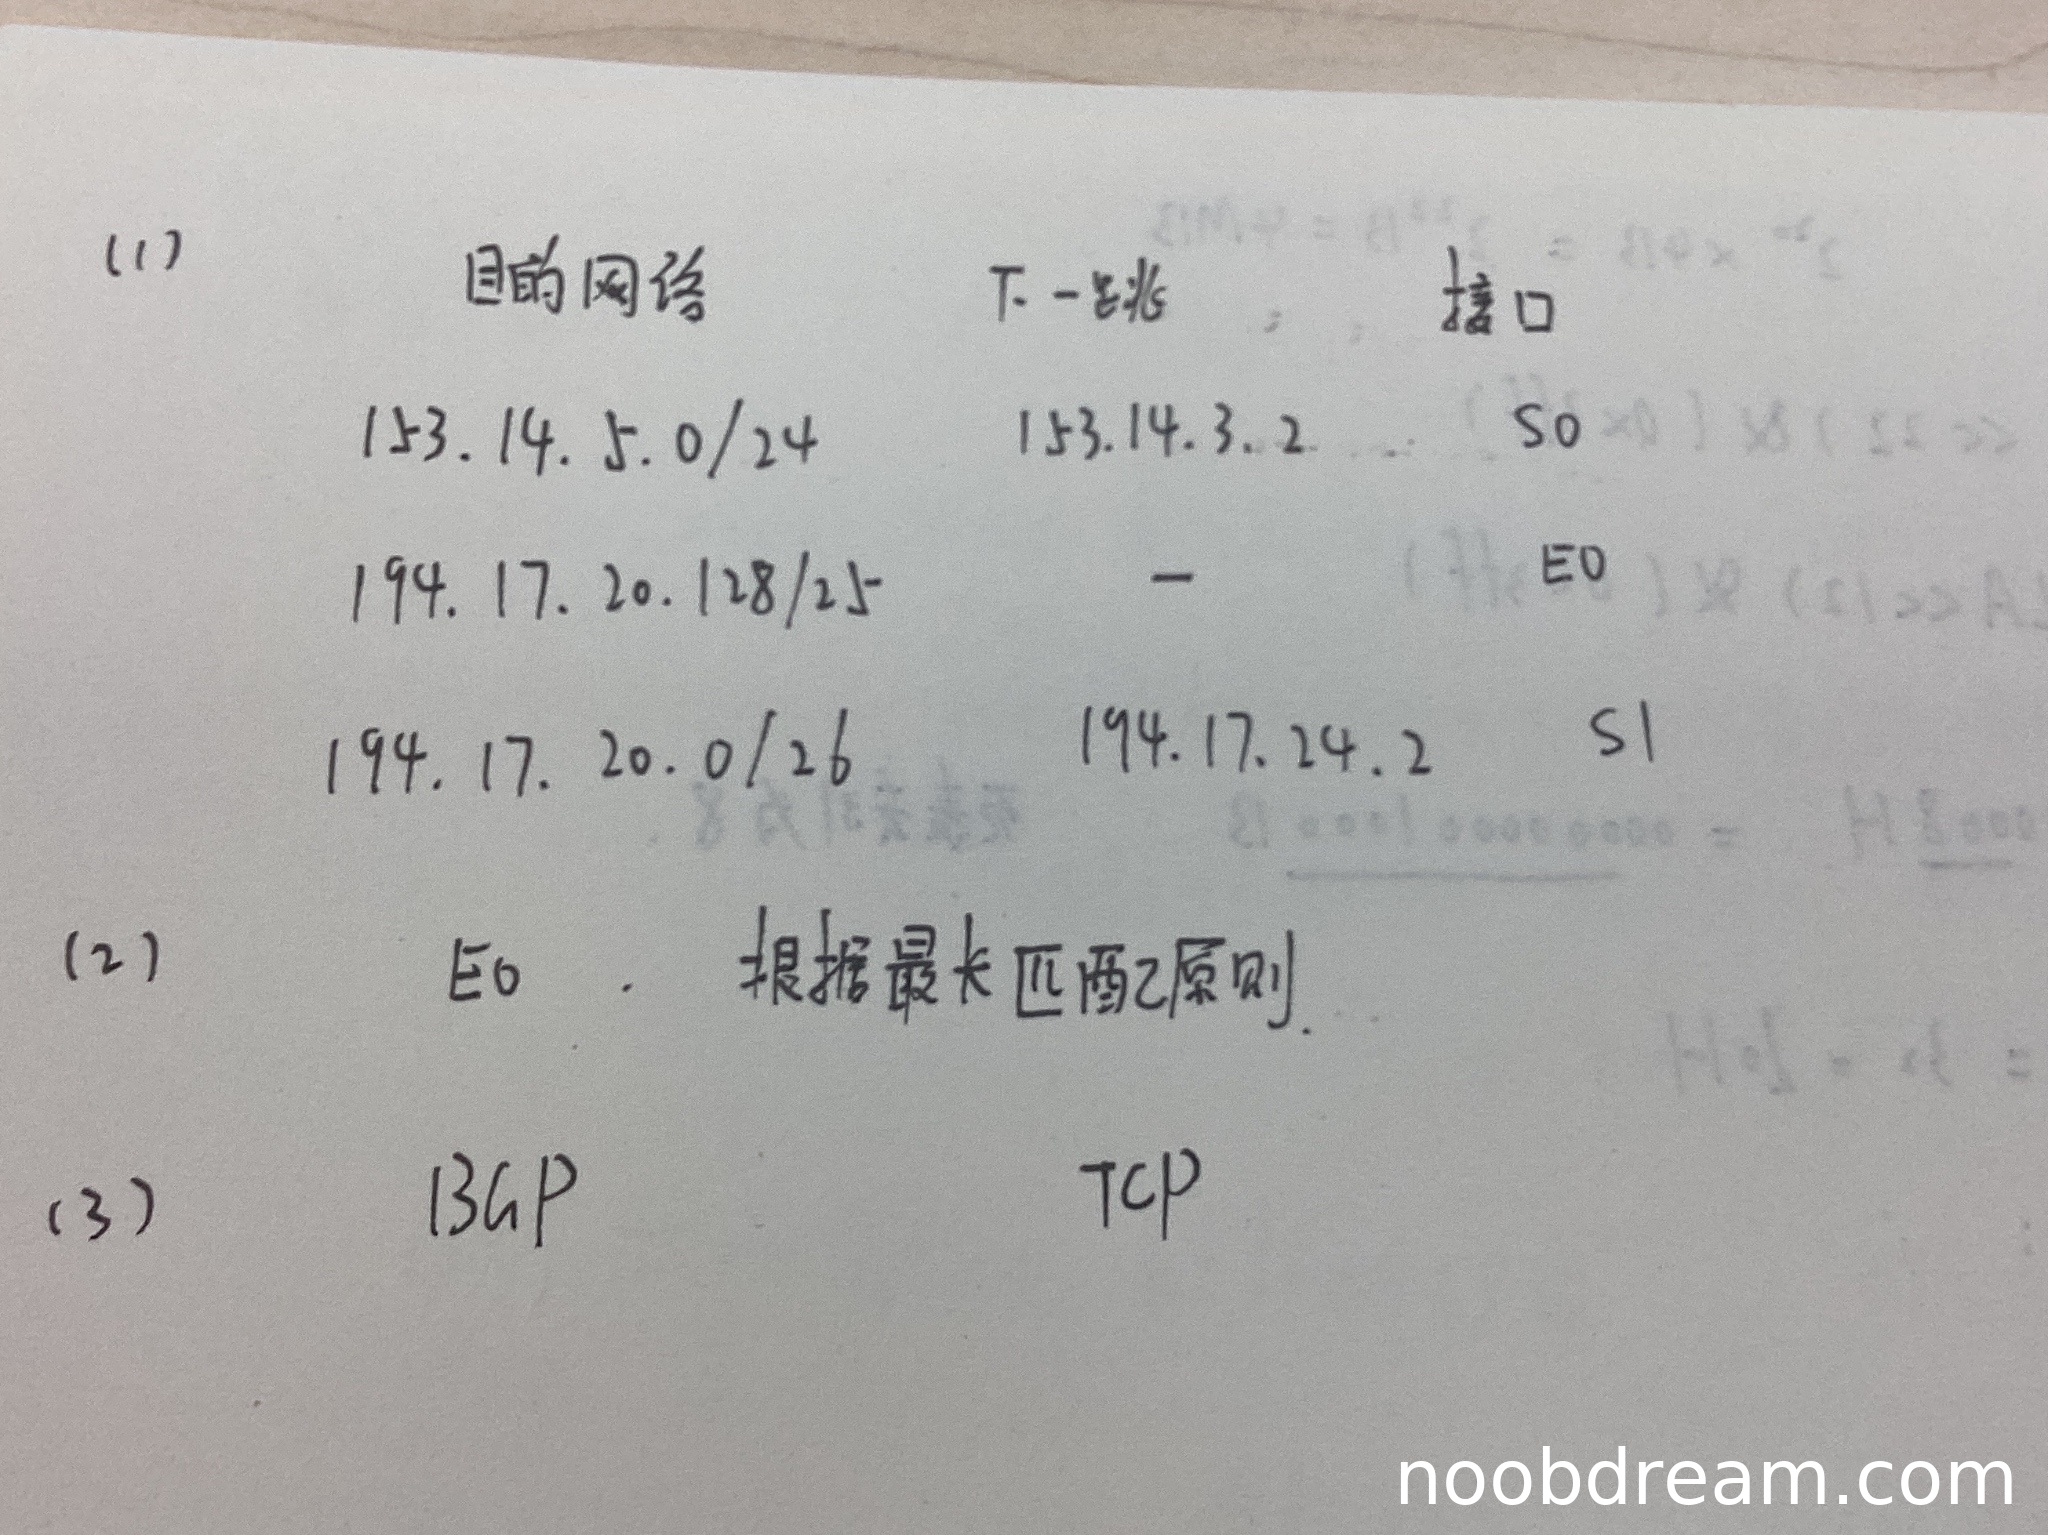 (1) 目的网络 下一跳 接口
153.14.5.0/24 153.14.3.2 S0
194.17.20.128/25 — E0
194.17.20.0/26 194.17.24.2 S1
(2) E0. 根据最长匹配原则.
(3) BGP TCP
noobdream.com